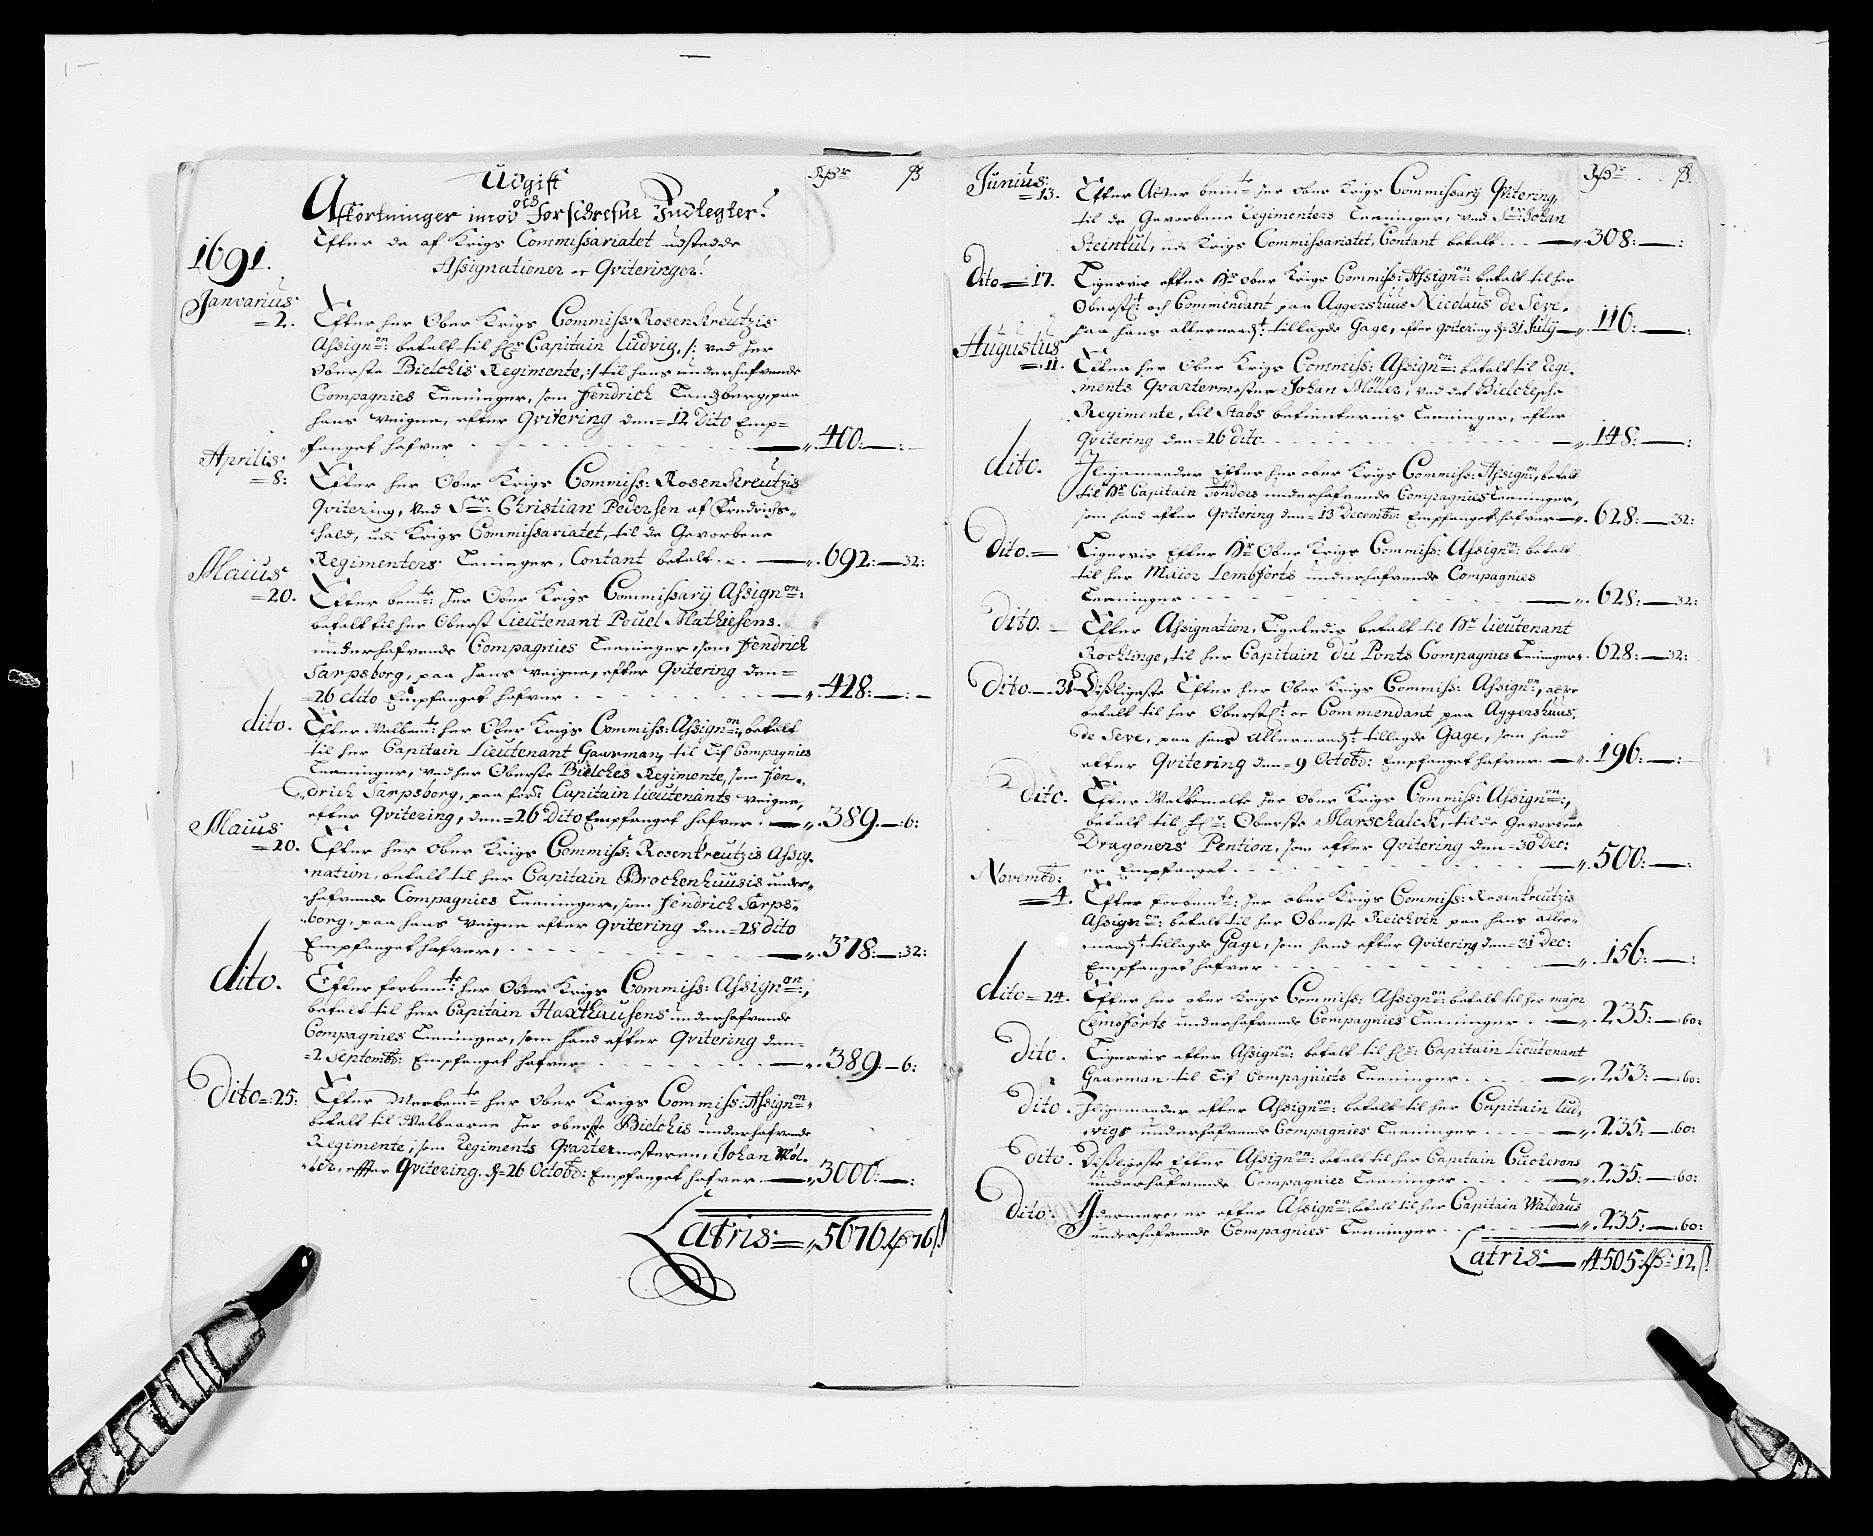 Udgift
och
Affkortninger imod Forschrefne Indtegter.
Rdr ß
1691. Efter de af Krigs Commissariatet udstedde
Assignationer oc Qviteringer.
Janvarius
=2. Efter her Ober Krigs Commiss: Rosenkreutzis
Assignon: betalt til hr Capitain Ludvig, /: ved her
Oberste Bielckis Regimente, :/ til hans underhafvende
Compagnies Tractninger, som Hendrich Tandsberg, paa
hans veigne, efter Qvitering den =12 Dito Emp=
fanget hafver - - - 400: — :
Aprilis
=8: Efter her Ober Krigs Commiss: Rosenkreutzis
Qvitering, Ved Sr: Christian Pedersen af Fredrichs=
hald, udi Krigs Commissariatet, til de Gevorbene
Regimenters Teninger, Contant betalt - - 692: — 32:
Maius
=20. Efter bemte: her Ober Krigs Commissarij Assignon:
betalt til her Oberst Lieutenant Povel Mathiesens
underhafvende Compagnies Teninger, som Hendrich
Sarpsborg, paa hans veigne, efter Qvitering den=
=26 dito Empfanget hafver - - - 428: — : —
dito. Efter Velbemte her Ober Krigs Commiss: Assignon:, betalt
til her Capitain Lieutenant Gaarman, til Lif Compagnies
Teninger, ved her Oberste Bielckes Regimente, som Hen=
drich Sarpsborg, paa forde Capitain Lieutenants veigne,
efter Qvitering, den =26 Dito Empfanget hafver. — 389. — 6:
Maius
=20. Efter her Ober Krigs Commiss: Rosenkreutzis Assig=
nation, betalt til her Capitain Brockenhuusis under=
hafvende Compagnies Teninger, som Hendrich Sarps=
borg, paa hans veigne efter Qvitering den =28 dito
Empfanget hafver, - - - 378: — 32:
dito. Efter forbemte her Ober Krigs Commiss: Assignon:,
betalt til her Capitain Haxthausens underhafvende
Compagnies Teninger, som hand efter Qvitering den=
=2 Septembr: Empfanget hafver - - - 389. — 6:
Dito =25: Efter Velbemte her Ober Krigs Commiss: Assignon:
betalt til Velbaarne her oberste Bielckis underhafvende
Regimente, som Regiments Qvartermesteren, Johan Möl=
ler, efter Qvitering. d =26 Octobr: Empfanget hafver — 3000: — :
Latris = 5676 Rdr 76 ß
Rdr ß
Junius
=13. Efter bemte her Ober Krigs Commissarij Qvitering,
til de Gevorbene Regimenters Teninger, ved Sr: Johan
Steinkul, udi Krigs Commissariatet, Contant betalt - - 308: — :
Dito =17. Ligervis efter Hr Ober Krigs Commiss: Assignon: betalt til her
Oberstlt och Commendant paa Aggershuus Nicolaus de Seve,
paa hans allernaadt tillagde Gage, efter qvitering d 31 July — 116: — :
Augustus
=11. Efter her Ober Krigs Commiss: Assignon: betalt til Regi=
ments Qvartermester Johan Möller, ved det Bielckesche
Regimente, til Stabs betienternis Teninger, efter
Qvitering den =26 dito - - - 148: — :
dito. Iligemaader Efter her ober Krigs Commiss: Assignon:, betalt
til Hr Capitain Tonders underhafvende Compagnies Teninger,
som hand efter Qvitering den =13 Decembr: Empfanget hafver — 628: — 32:
Dito. — Ligervis Efter Hr Ober Krigs Commiss: Assignon: betalt
til her Maior Lembforts underhafvende Compagnies
Teninger - - - 628: — 32:
dito. — Efter Assignation, Ligeledis betalt til Hr Lieutenant
Rochlinge, til her Capitain Du Ponts Compagnies Teninger. 628: — 32:
Dito. — 31 Disligeste Efter her Ober Krigs Commiss: Assignon:,
betalt til her Oberstlt oc Commendant paa Aggershuus,
de Seve, paa hans Allernaadt tillagde Gage, som hand
efter Qvitering den =9 Octobr: Empfanget hafver — 196: — :
dito. Efter Velbemelte her Ober Krigs Commiss: Assignon:,
betalt til hr: Oberste Marschalck, til de Gevorbene
Dragoners Pention, som efter Qvitering den =30 Dec:
er Empfanget - - - 500: — :
Novembr:
=4. Efter forbemte: her ober Krigs Commiss: Rosenkreutzis
Assignon: betalt til her Oberste Reichvin paa hans aller=
naadt tillagde Gage, som hand efter Qvitering den =31 Dec:
Empfanget hafver - - - 156: — :
dito =24. Efter her ober Krigs Commiss: Assignon: betalt til her major
Lemforts underhafvende Compagnies Teninger - - 235: — 60:
Dito. Ligervis efter Assignon: betalt til hr: Capitain Lieutenant
Gaarman til Lif Compagniets Teninger - - - 253: — 60:
dito. Iligemaader efter Assignon: betalt til her Capitain Lud=
vigs underhafvende Compagnies Teninger - - - 235: — 60:
dito. Disligeste Efter Assignon: betalt til her Capitain Cicherons
underhafvende Compagnies Teninger - - - 235: — 60:
dito. Ydermere, er efter Assignon: betalt til her Capitain Waldaus
underhafvende Compagnies Teninger - - - 235: — 60:
Latris — 4505 Rdr: 12 ß